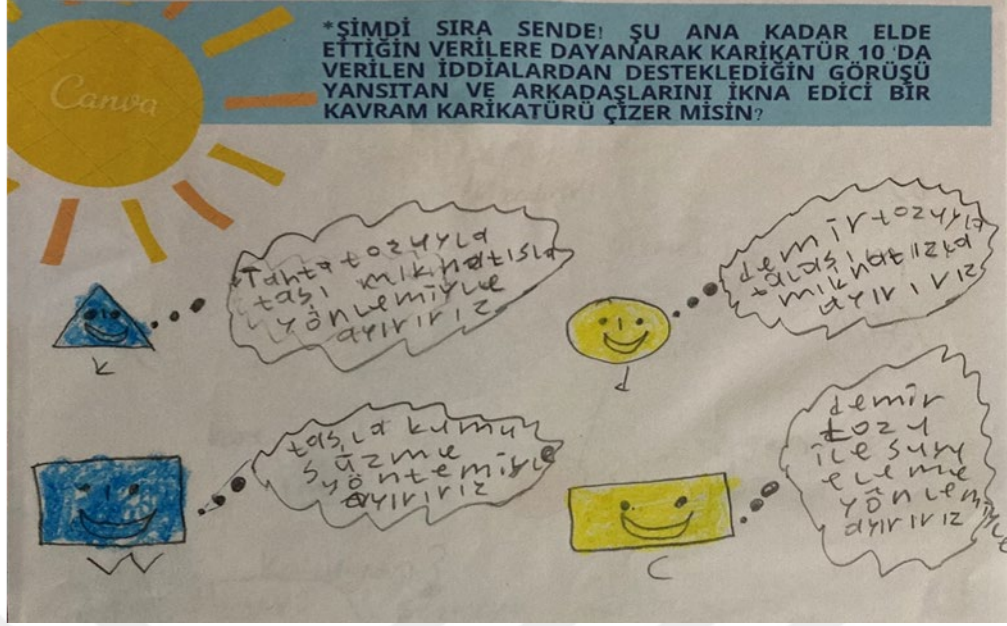 *ŞİMDİ SIRA SENDE! ŞU ANA KADAR ELDE
ETTİĞİN VERİLERE DAYANARAK KARİKATÜR 10 'DA
VERİLEN İDDİALARDAN DESTEKLEDİĞİN GÖRÜŞÜ
YANSITAN VE ARKADAŞLARINI İKNA EDİCİ BİR
KAVRAM KARİKATÜRÜ ÇİZER MİSİN?
Canva
Tahta tozuyla
taşı mıknatısla
yönlemiyle
ayırırız
K
demir tozuyla
talaşı
mıknatızla
ayırırız
d
taşla kumu
süzme
yöntemiyle
ayırırız
demir
tozu
ile suyu
eleme
yönlemiyle
ayırırız
C